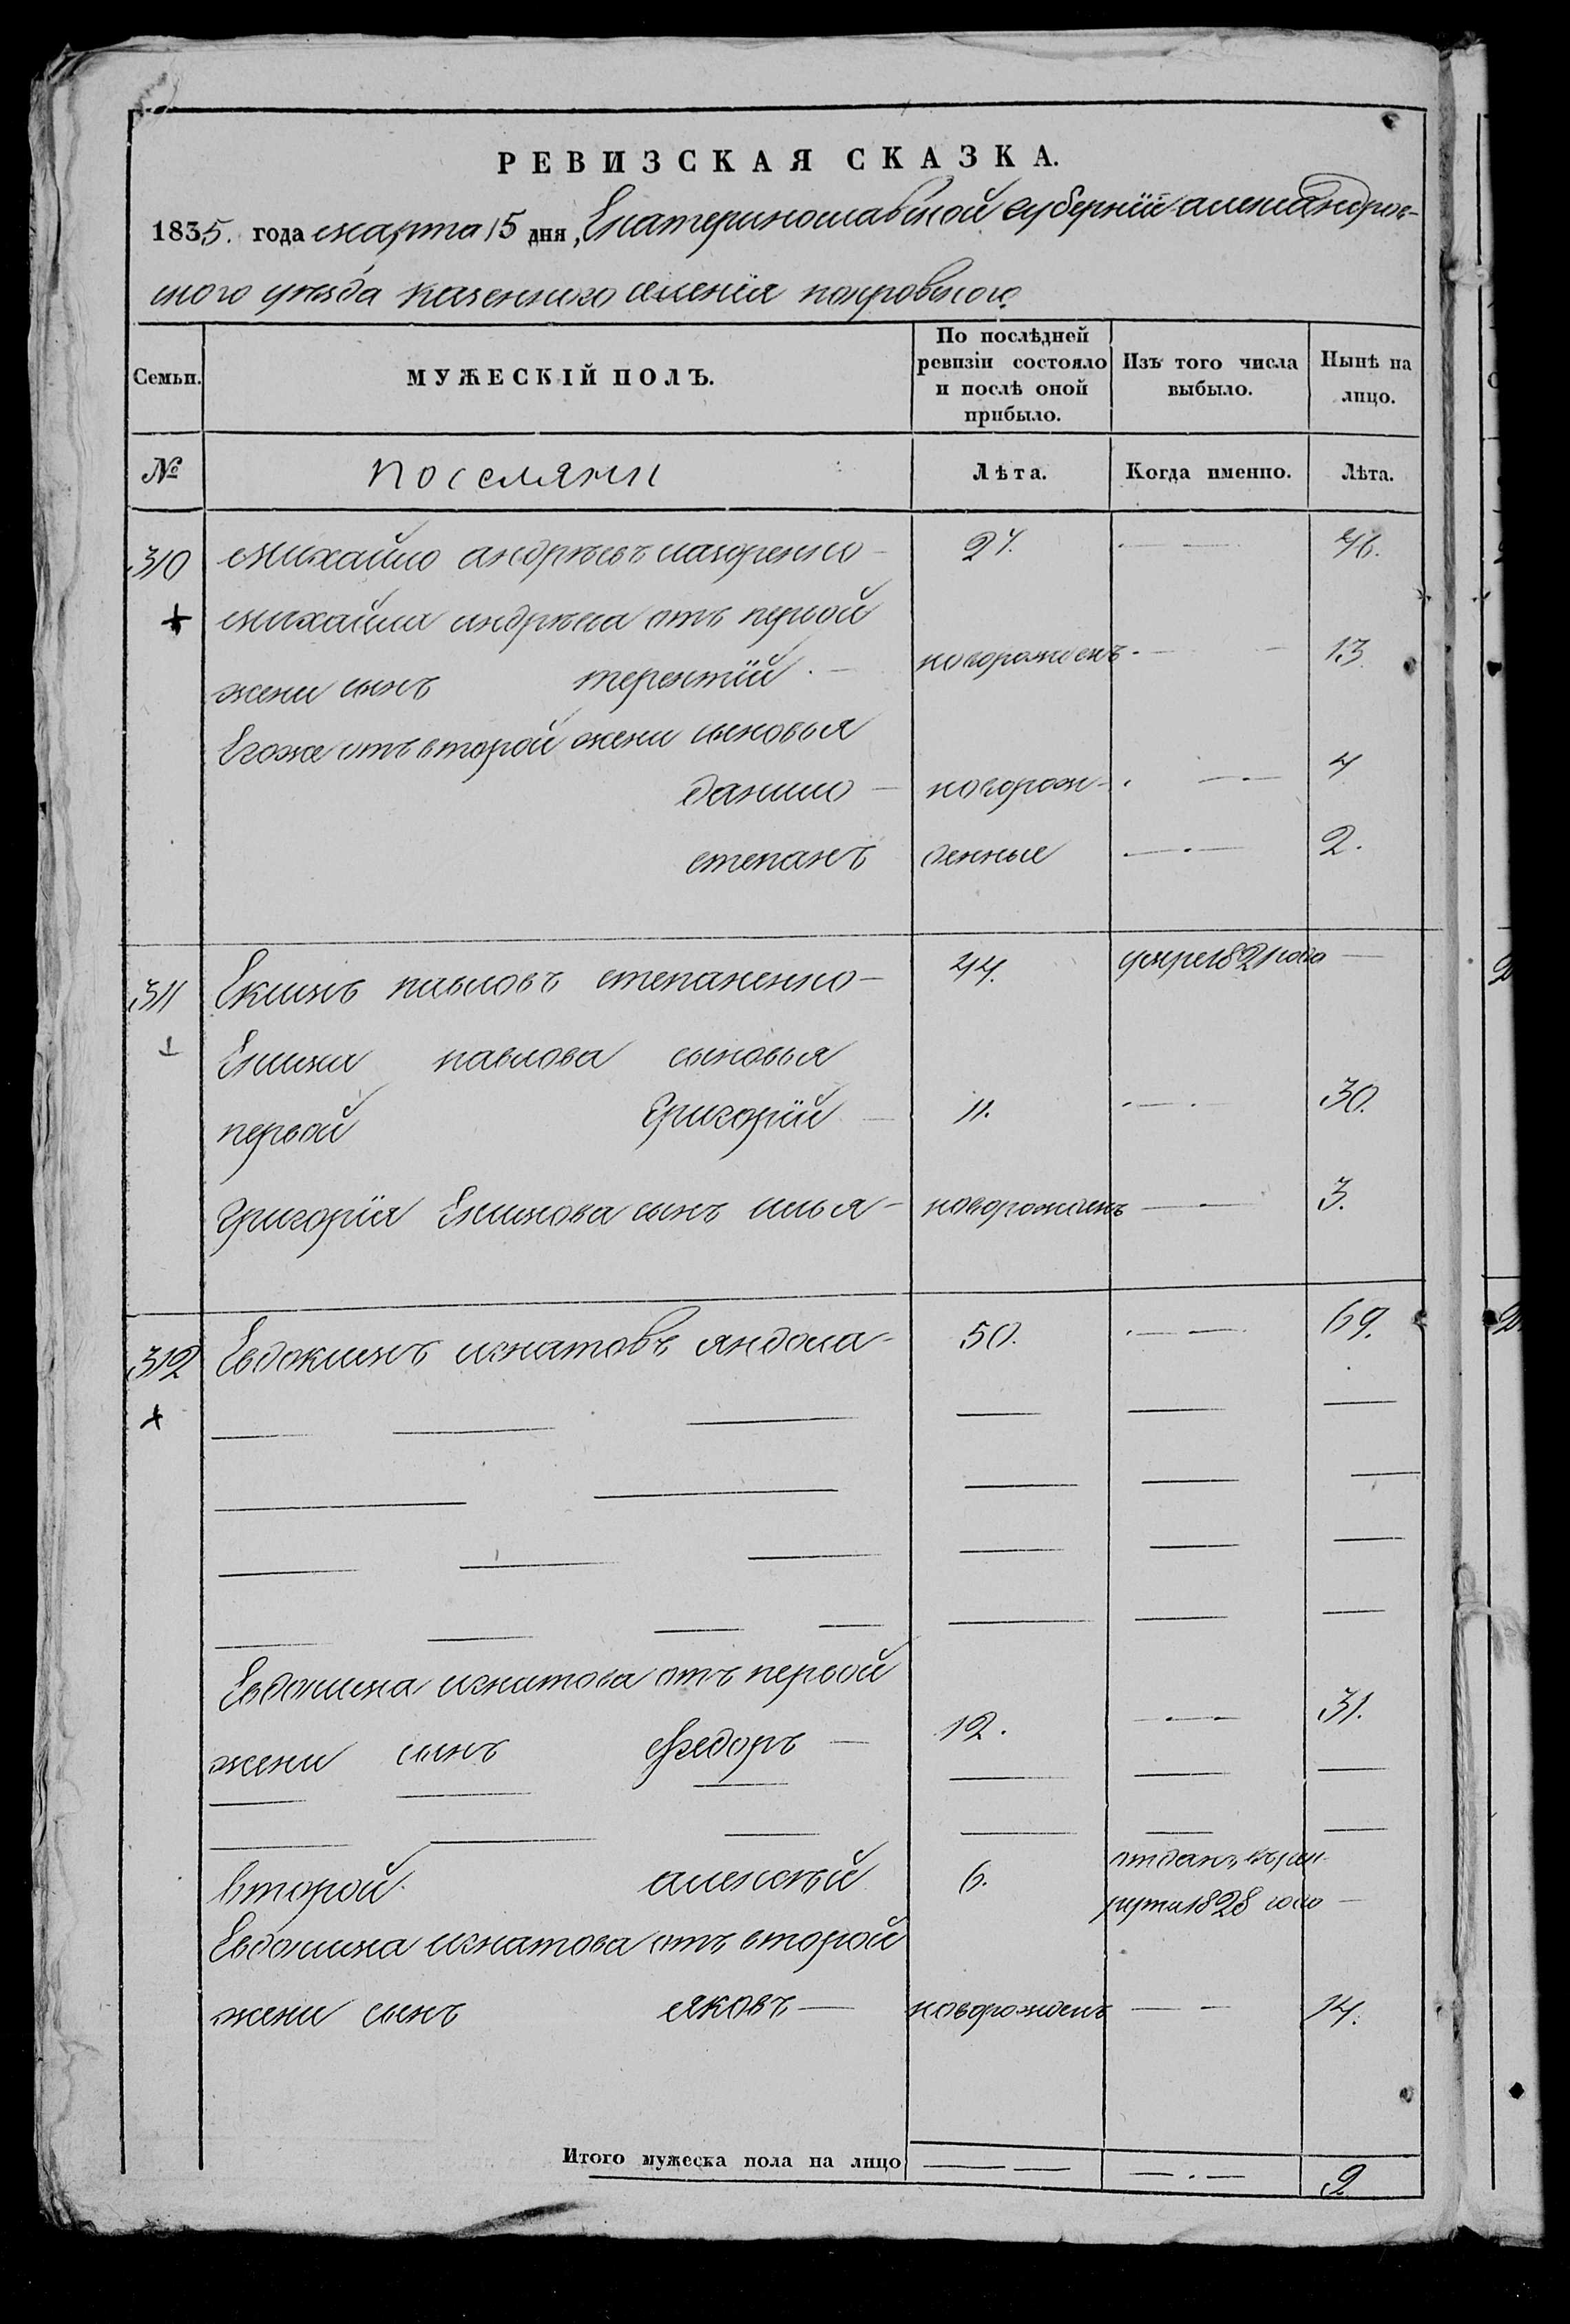 РЕВИЗСКАЯ СКАЗКА.
1835. года марта 15 дня, Екатеринославской губернїи александров-
ского уезда казенного селенїя покровского
Семьи.
МУЖЕСКІЙ ПОЛЪ.
По послѣдней ревизіи состояло и послѣ оной прибыло.
Изъ того числа выбыло.
Нынѣ на лицо.
№ поселяни Лѣта. Когда именно. Лѣта.
310 михайло андрѣевъ назаренко - 27. — — 46.
михайла андрѣева отъ первой
жени сынъ терентїй. — новорожденъ. — — 13.
Егоже отъ второй жени сыновья
данило — новорож- — — 4
степанъ денные — — 2.
311 Екимъ павловъ степаненко — 44. умре 1821 года —
Екима павлова сыновья
первой Григорїй — 11. — — 30.
Григорїя Екимова сынъ илья — новорожденъ — — 3.
312 Евдокимъ игнатовъ яндола - 50. — — 69.
Евдокима игнатова отъ первой
жени сынъ федоръ — 12. — — 31.
второй алексѣй 6. отданъ въ рек-
руты 1828 года —
Евдокима игнатова отъ второй
жени сынъ яковъ — новорожденъ — — 14.
Итого мужеска пола на лицо — — — — 9